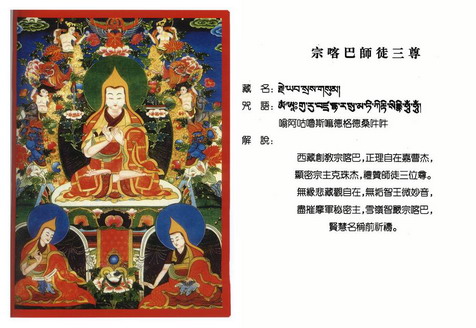 宗喀巴師徒三尊
藏 名：རྗེ་ཡབ་སྲས་གསུམ།
咒 語：
嗡阿咕嚕斯嘛德格德桑吽吽
解 說：
西藏創教宗喀巴，正理自在嘉曹杰，
顯密宗主克珠杰，禮贊師徒三位尊。
無緣悲藏觀自在，無垢智王微妙音，
盡摧摩軍秘密主，雪嶺智嚴宗喀巴，
賢慧名稱前祈禱。